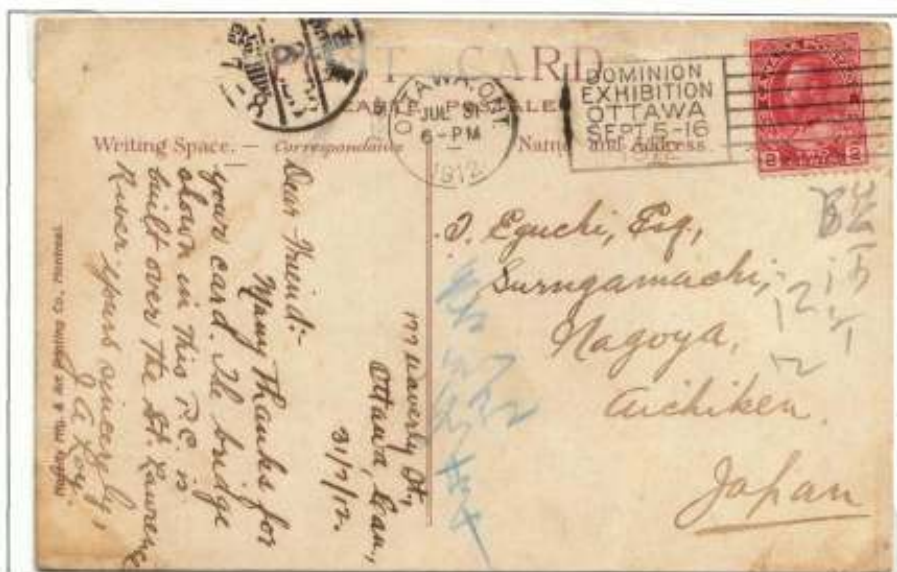 CARD
CARTE POSTALE
OTTAWA, ONT.
JUL 31
6-PM
1912
DOMINION
EXHIBITION
OTTAWA
SEPT. 5-16
1912
2 2
Writing Space. — Correspondance
Name and Address
177 Waverly St,
Ottawa Can,
31/7/12.
Dear Friend:-
Many Thanks for
your card. The bridge
shown in this P.C. is
built over the St. Lawrence
River. Yours sincerely,
J A Loy.
Eguchi, Esq.,
Surugamachi,
Nagoya,
Aichiken.
Japan
Co., Montreal.